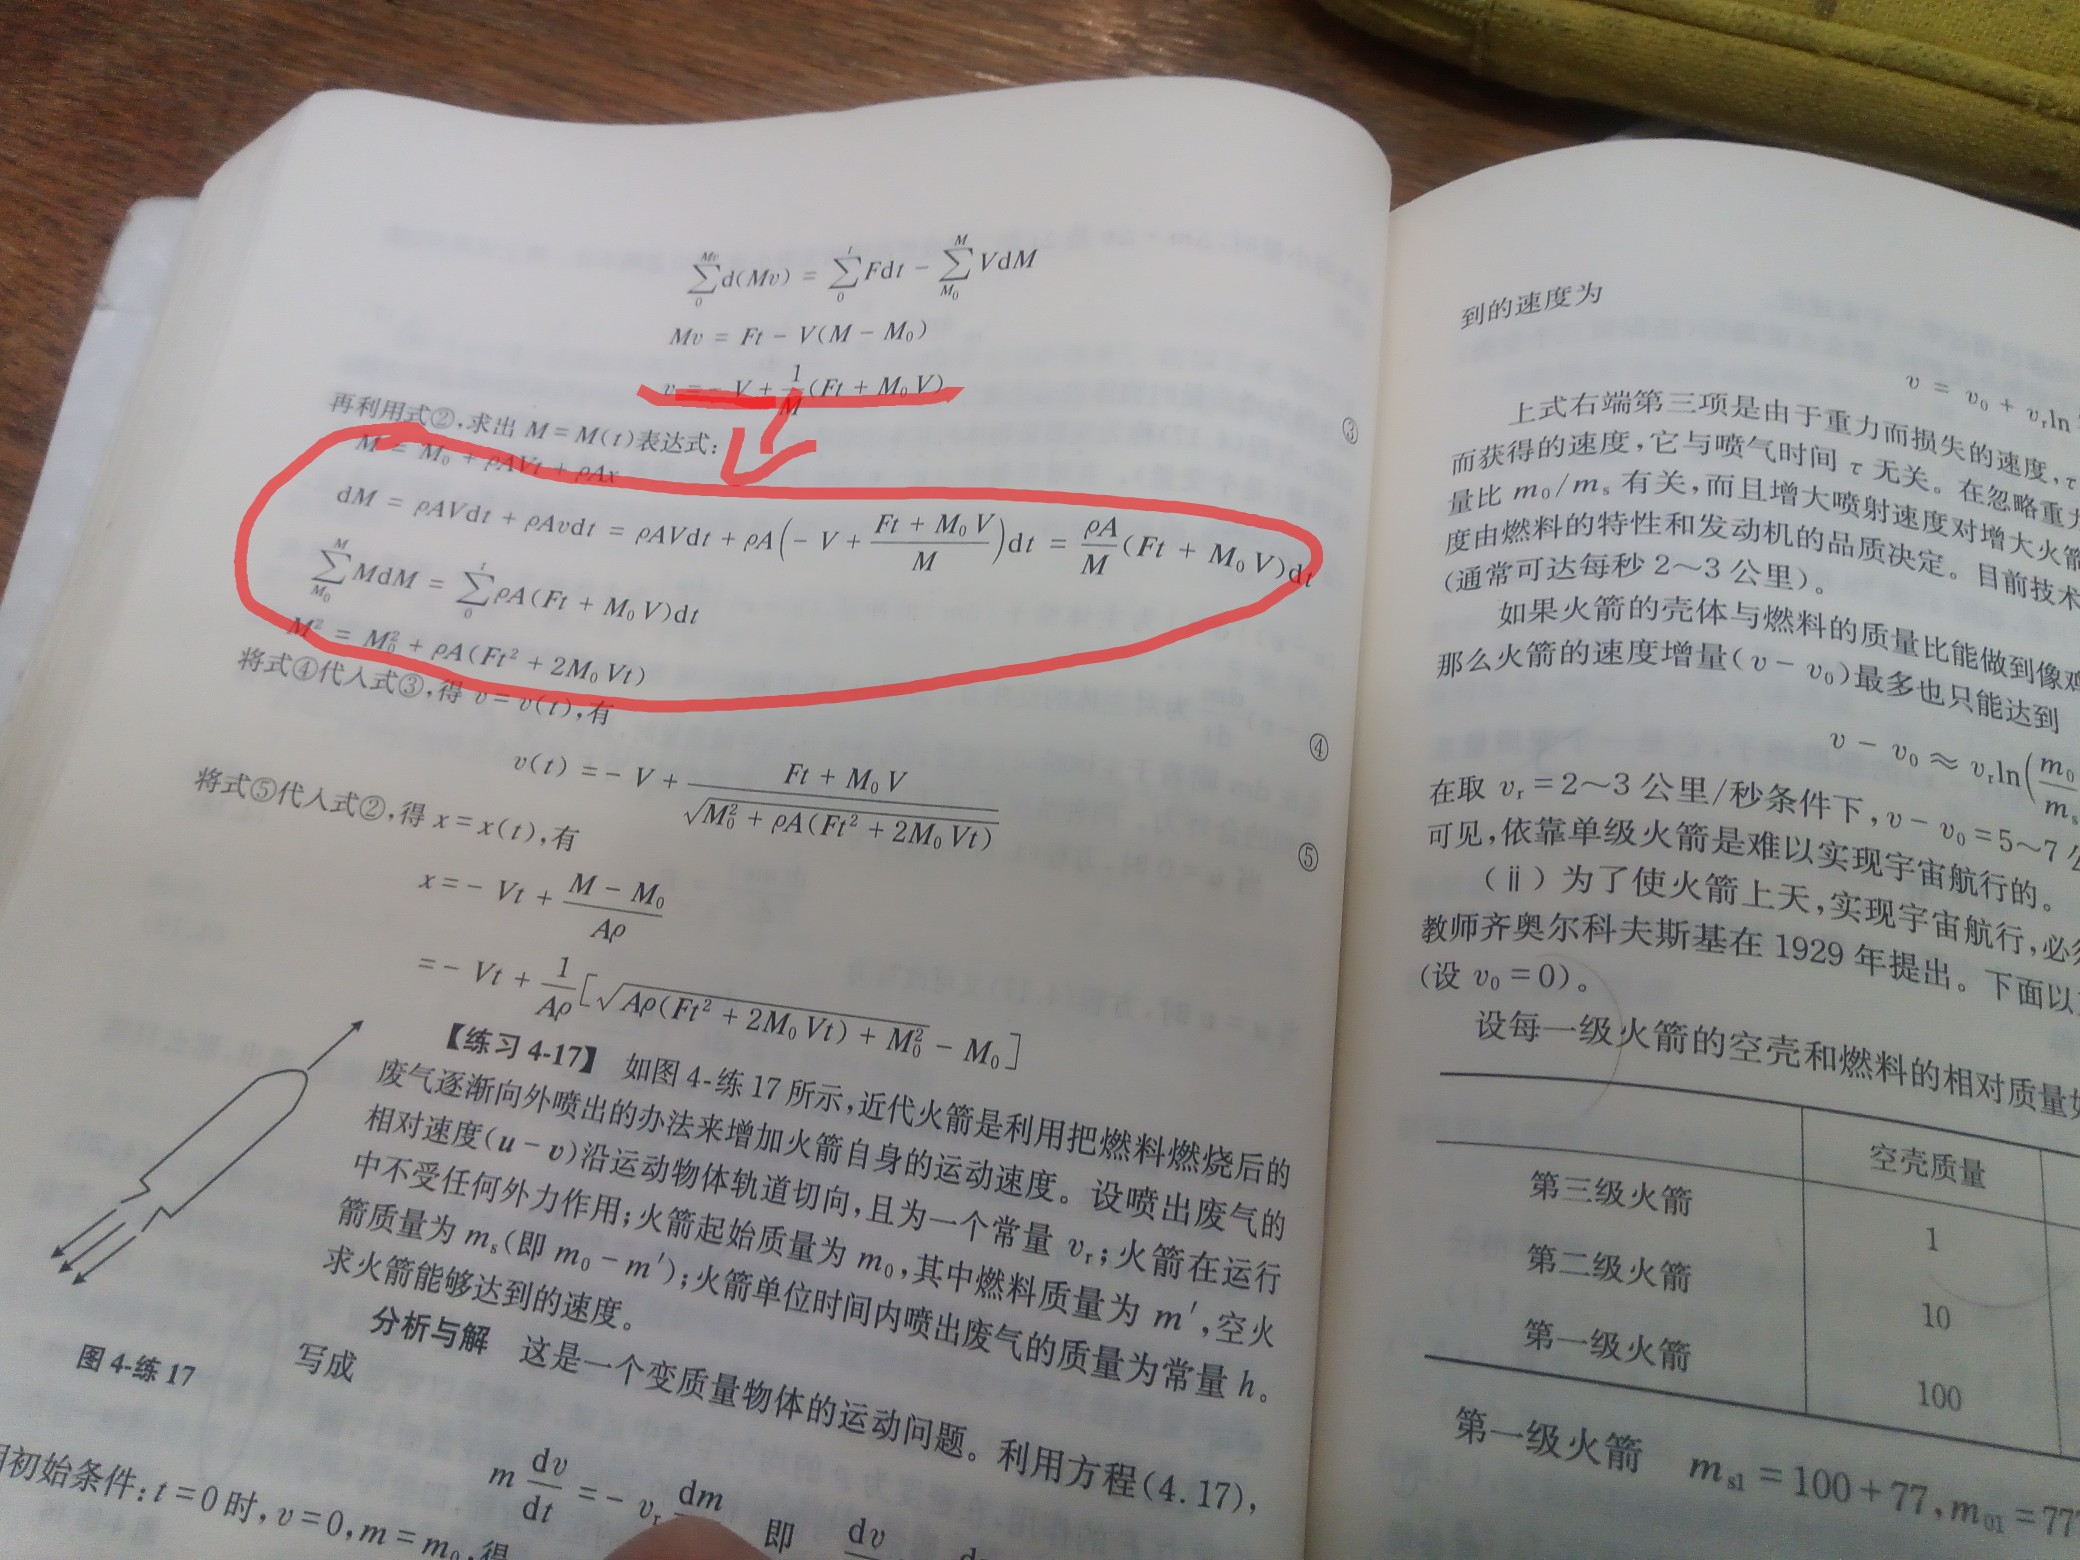 $\sum_{0}^{Mv} d(Mv) = \sum_{0}^{t} Fdt - \sum_{M_0}^{M} VdM$
$Mv = Ft - V(M - M_0)$
$v = - V + \frac{1}{M}(Ft + M_0 V)$ ③
再利用式②,求出 M = M(t)表达式:
$M = M_0 + ρAVt + ρAx$
$dM = ρAVdt + ρAvdt = ρAVdt + ρA\left(- V + \frac{Ft + M_0 V}{M}\right)dt = \frac{ρA}{M}(Ft + M_0 V)dt$
$\sum_{M_0}^{M} MdM = \sum_{0}^{t} ρA(Ft + M_0 V)dt$
$M^2 = M_0^2 + ρA(Ft^2 + 2M_0 Vt)$ ④
将式④代入式③,得 v = v(t),有
$v(t) = - V + \frac{Ft + M_0 V}{\sqrt{M_0^2 + ρA(Ft^2 + 2M_0 Vt)}}$ ⑤
将式⑤代入式②,得 x = x(t),有
$x = - Vt + \frac{M - M_0}{Aρ}$
$= - Vt + \frac{1}{Aρ}[\sqrt{Aρ(Ft^2 + 2M_0 Vt) + M_0^2} - M_0]$
【练习 4-17】 如图 4-练 17 所示,近代火箭是利用把燃料燃烧后的
废气逐渐向外喷出的办法来增加火箭自身的运动速度。设喷出废气的
相对速度(u - v)沿运动物体轨道切向,且为一个常量 $v_r$;火箭在运行
中不受任何外力作用;火箭起始质量为 $m_0$,其中燃料质量为 m′,空火
箭质量为 $m_s$(即 $m_0 - m′$);火箭单位时间内喷出废气的质量为常量 h。
求火箭能够达到的速度。
图 4-练 17
分析与解 这是一个变质量物体的运动问题。利用方程(4.17),
写成
$m\frac{dv}{dt} = - v_r \frac{dm}{}$ 即 dv
初始条件:t = 0 时, v = 0, m = $m_0$,得
到的速度为
$v = v_0 + v_r \ln$
上式右端第三项是由于重力而损失的速度,
而获得的速度,它与喷气时间 τ 无关。在忽略重力
量比 $m_0/m_s$ 有关,而且增大喷射速度对增大火箭
度由燃料的特性和发动机的品质决定。目前技术
(通常可达每秒 2～3 公里)。
如果火箭的壳体与燃料的质量比能做到像鸡
那么火箭的速度增量(v - $v_0$)最多也只能达到
$v - v_0 ≈ v_r \ln\left(\frac{m_0}{m_s}\right.$
在取 $v_r$ = 2～3 公里/秒条件下, v - $v_0$ = 5～7 公
可见,依靠单级火箭是难以实现宇宙航行的。
(ⅱ) 为了使火箭上天,实现宇宙航行,必须
教师齐奥尔科夫斯基在 1929 年提出。下面以
(设 $v_0$ = 0)。
设每一级火箭的空壳和燃料的相对质量如
空壳质量
第三级火箭 1
第二级火箭 10
第一级火箭 100
第一级火箭 $m_{s1}$ = 100 + 77, $m_{01}$ = 777